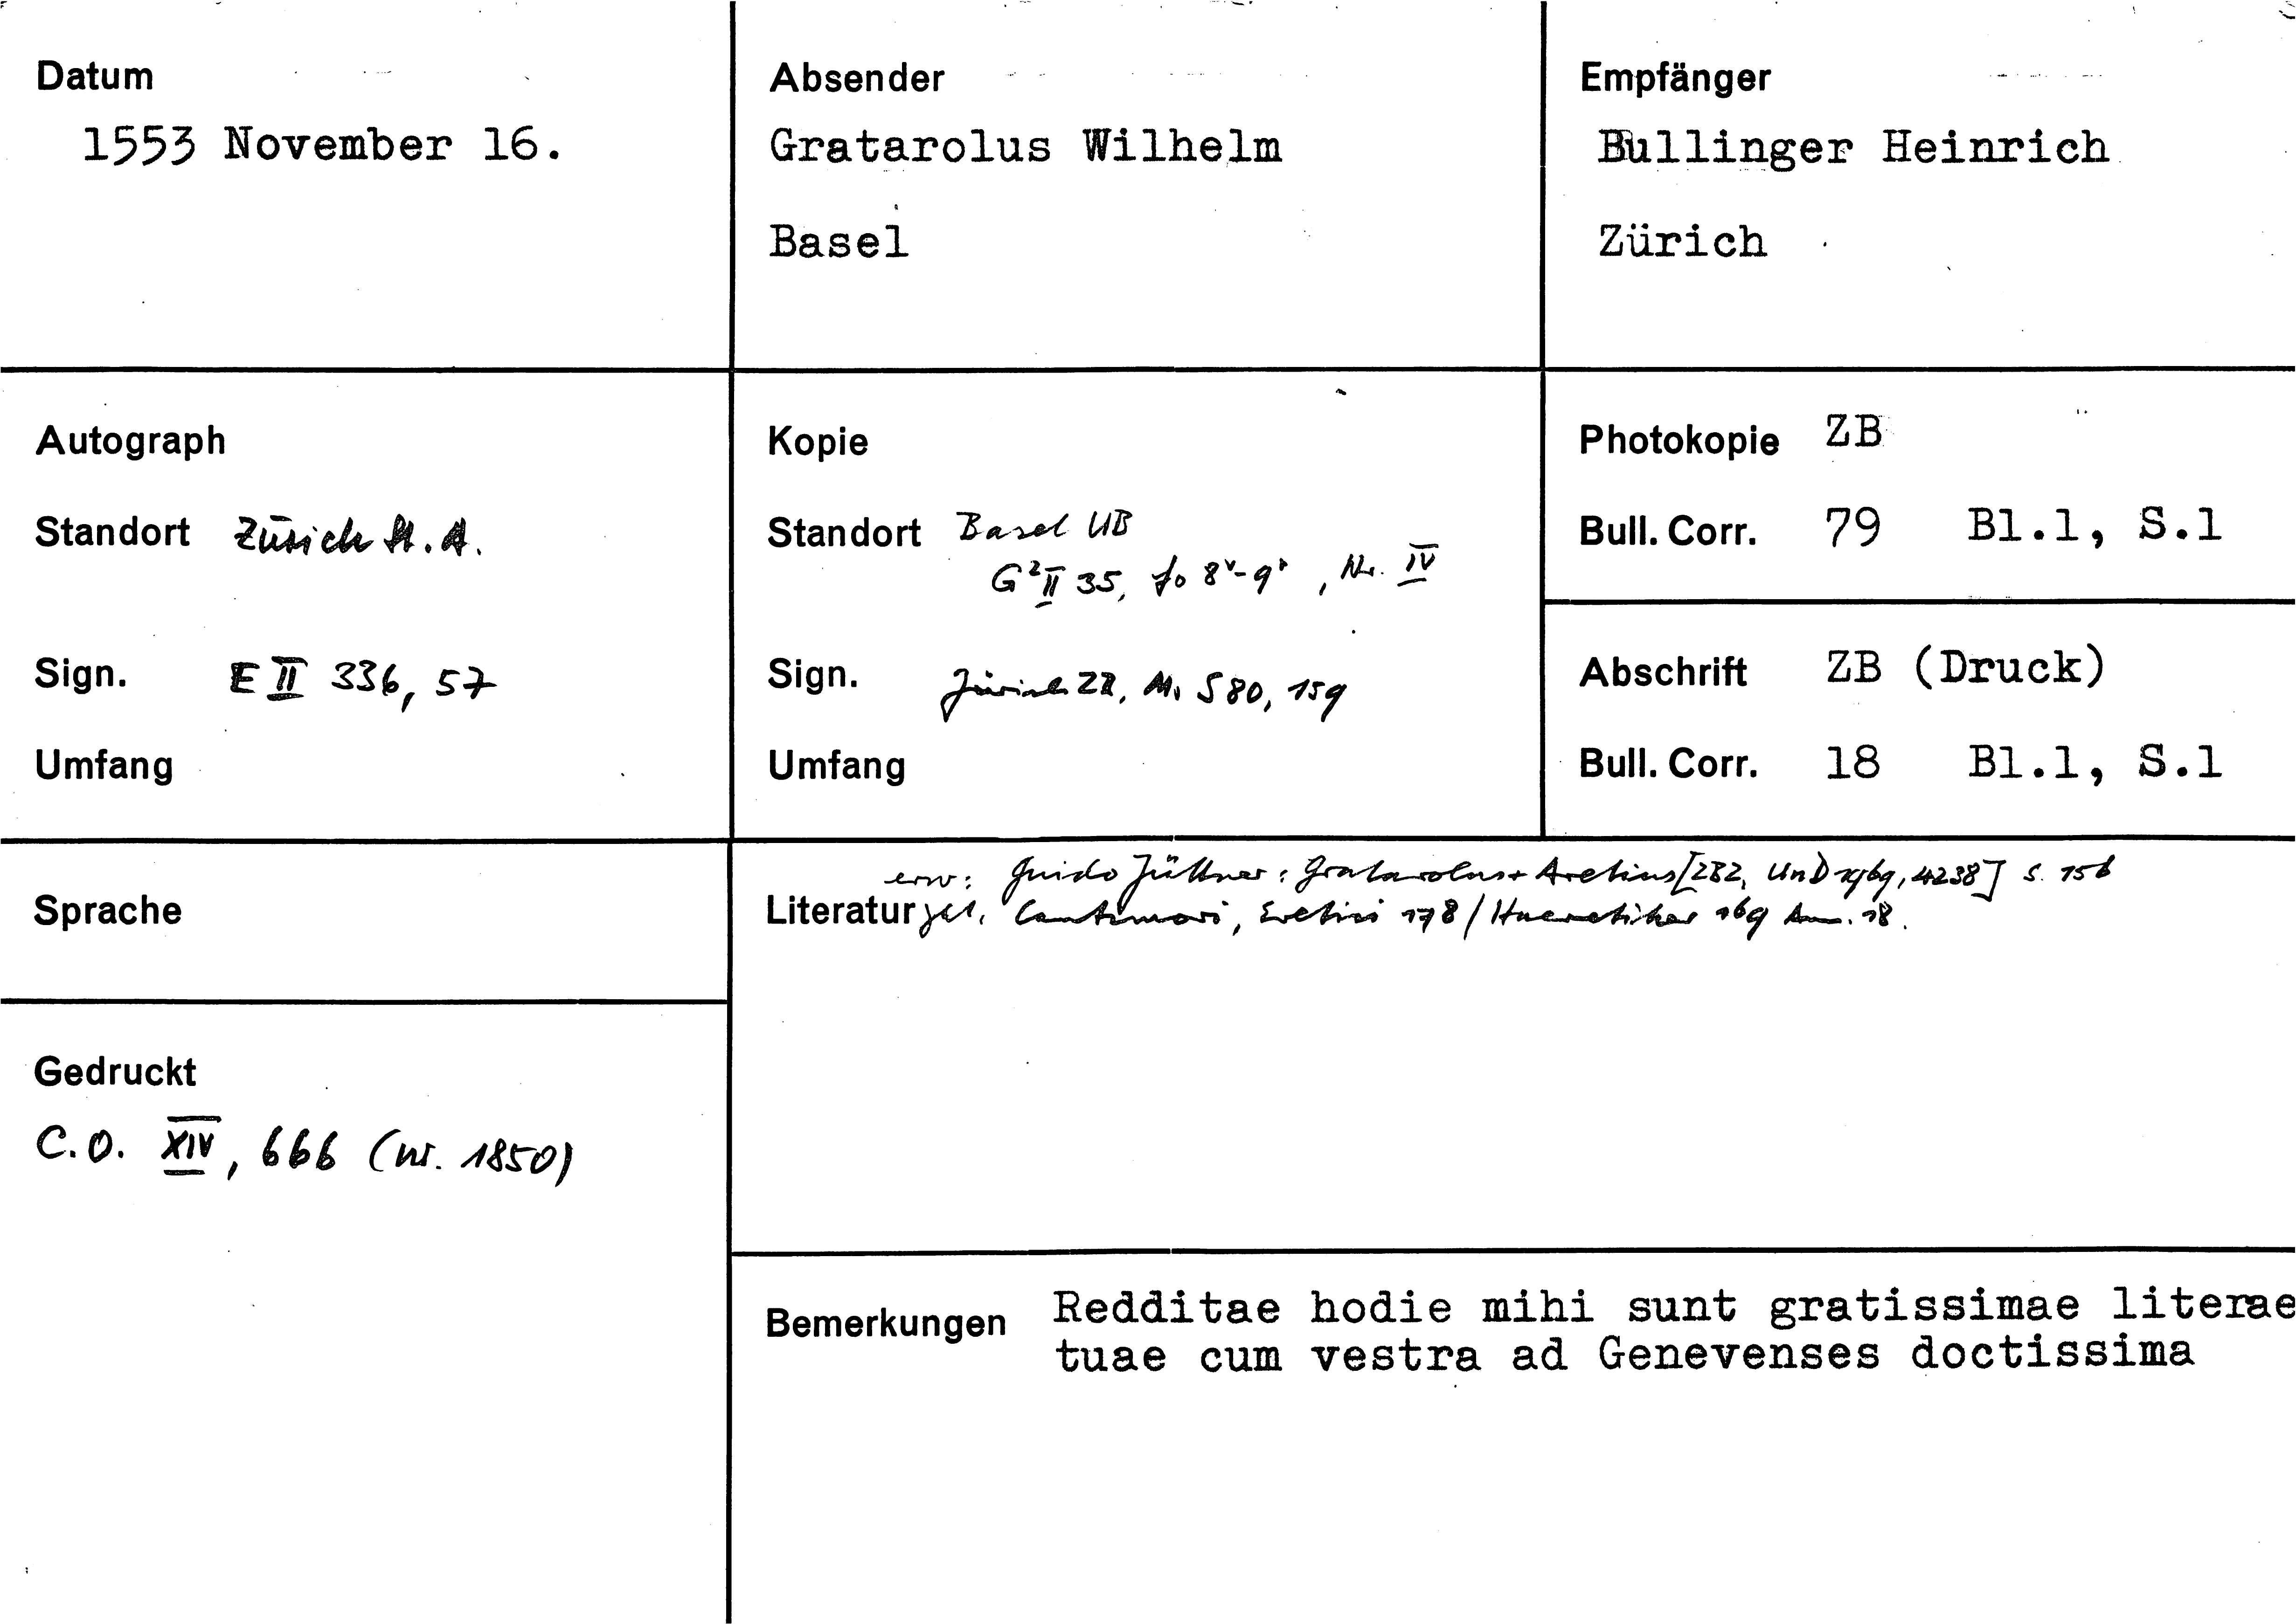 Datum
1553 November 16.
Absender
Gratarolus Wilhelm
Basel
Empfänger
Bullinger Heinrich
Zürich
Autograph
Standort Zürich St.A.
Sign. E II 336, 57
Umfang
Kopie
Standort Basel UB
G² II 35, fo 8v-9r, Nr. IV
Sign. Zürich ZB, Ms S 80, 159
Umfang
Photokopie ZB
Bull. Corr. 79 Bl.1, S.1
Abschrift ZB (Druck)
Bull. Corr. 18 Bl.1, S.1
Sprache
Gedruckt
C.O. XIV, 666 (nr. 1850)
erw: Guido Jüttner: Gratarolus + Aretius [ZBZ, Un D 1969, 4238] S. 156
Literatur zit. Cantimori, Eretici 178 / Haeretiker 169 Anm. 18.
Bemerkungen Redditae hodie mihi sunt gratissimae literae
tuae cum vestra ad Genevenses doctissima